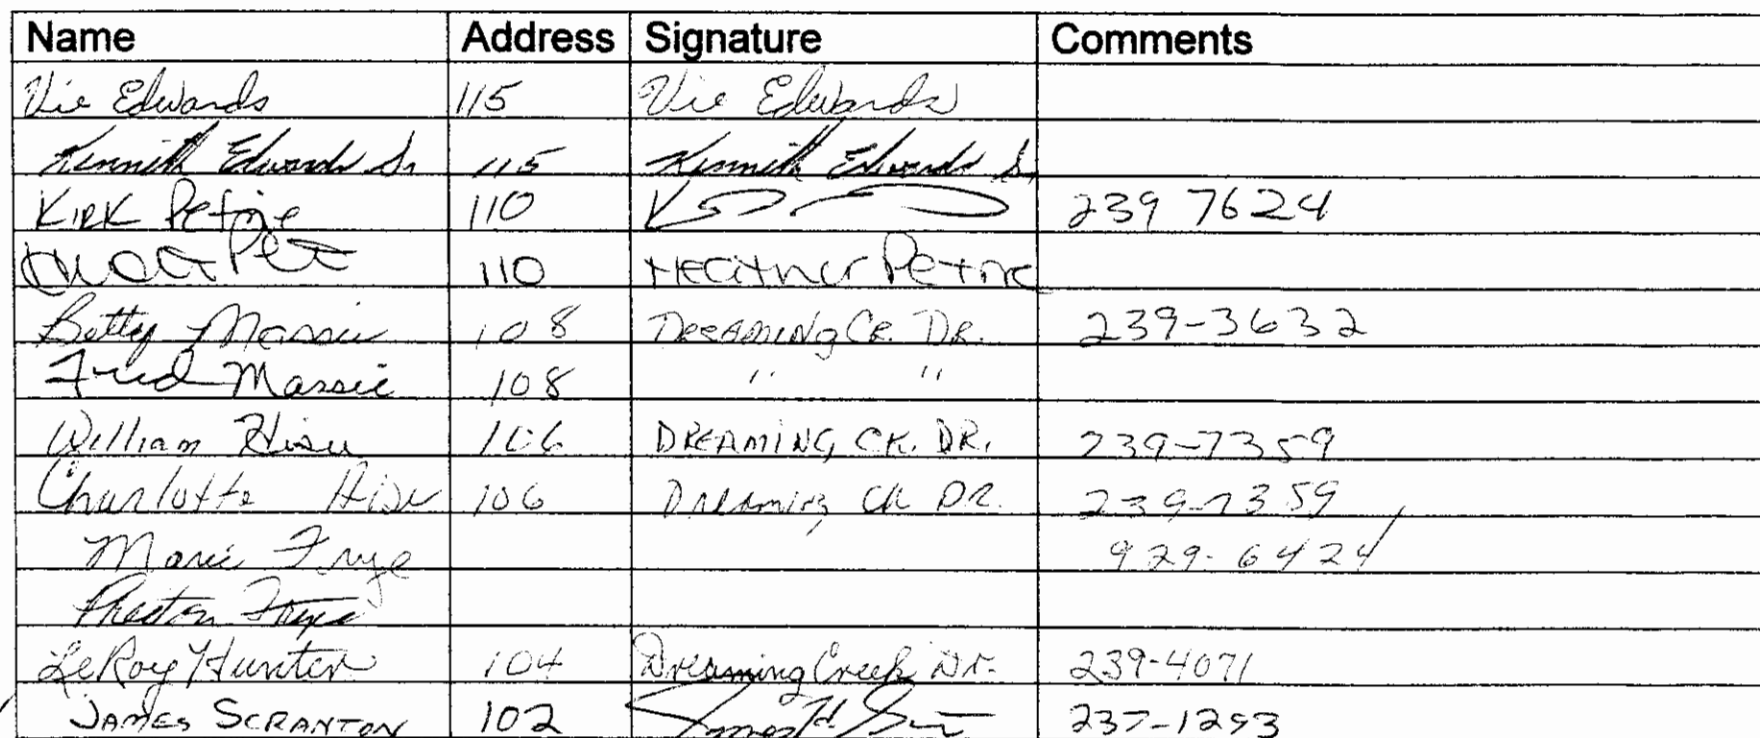 Name Address Signature Comments
Vic Edwards 115 Vic Edwards
Kenneth Edwards Sr 115 Kenneth Edwards Sr
KIRK Petrie 110 239 7624
110 Heather Petrie
Betty Massie 108 DREAMING CR. DR. 239-3632
Fred Massie 108 " "
William Hise 106 DREAMING CK. DR. 239-7359
Charlotte Hise 106 Dreaming Ck DR. 239-7359
Marie Frye 929-6424
Preston Frye
LeRoy Hunter 104 Dreaming Creek Dr. 239-4071
JAMES SCRANTON 102 237-1293